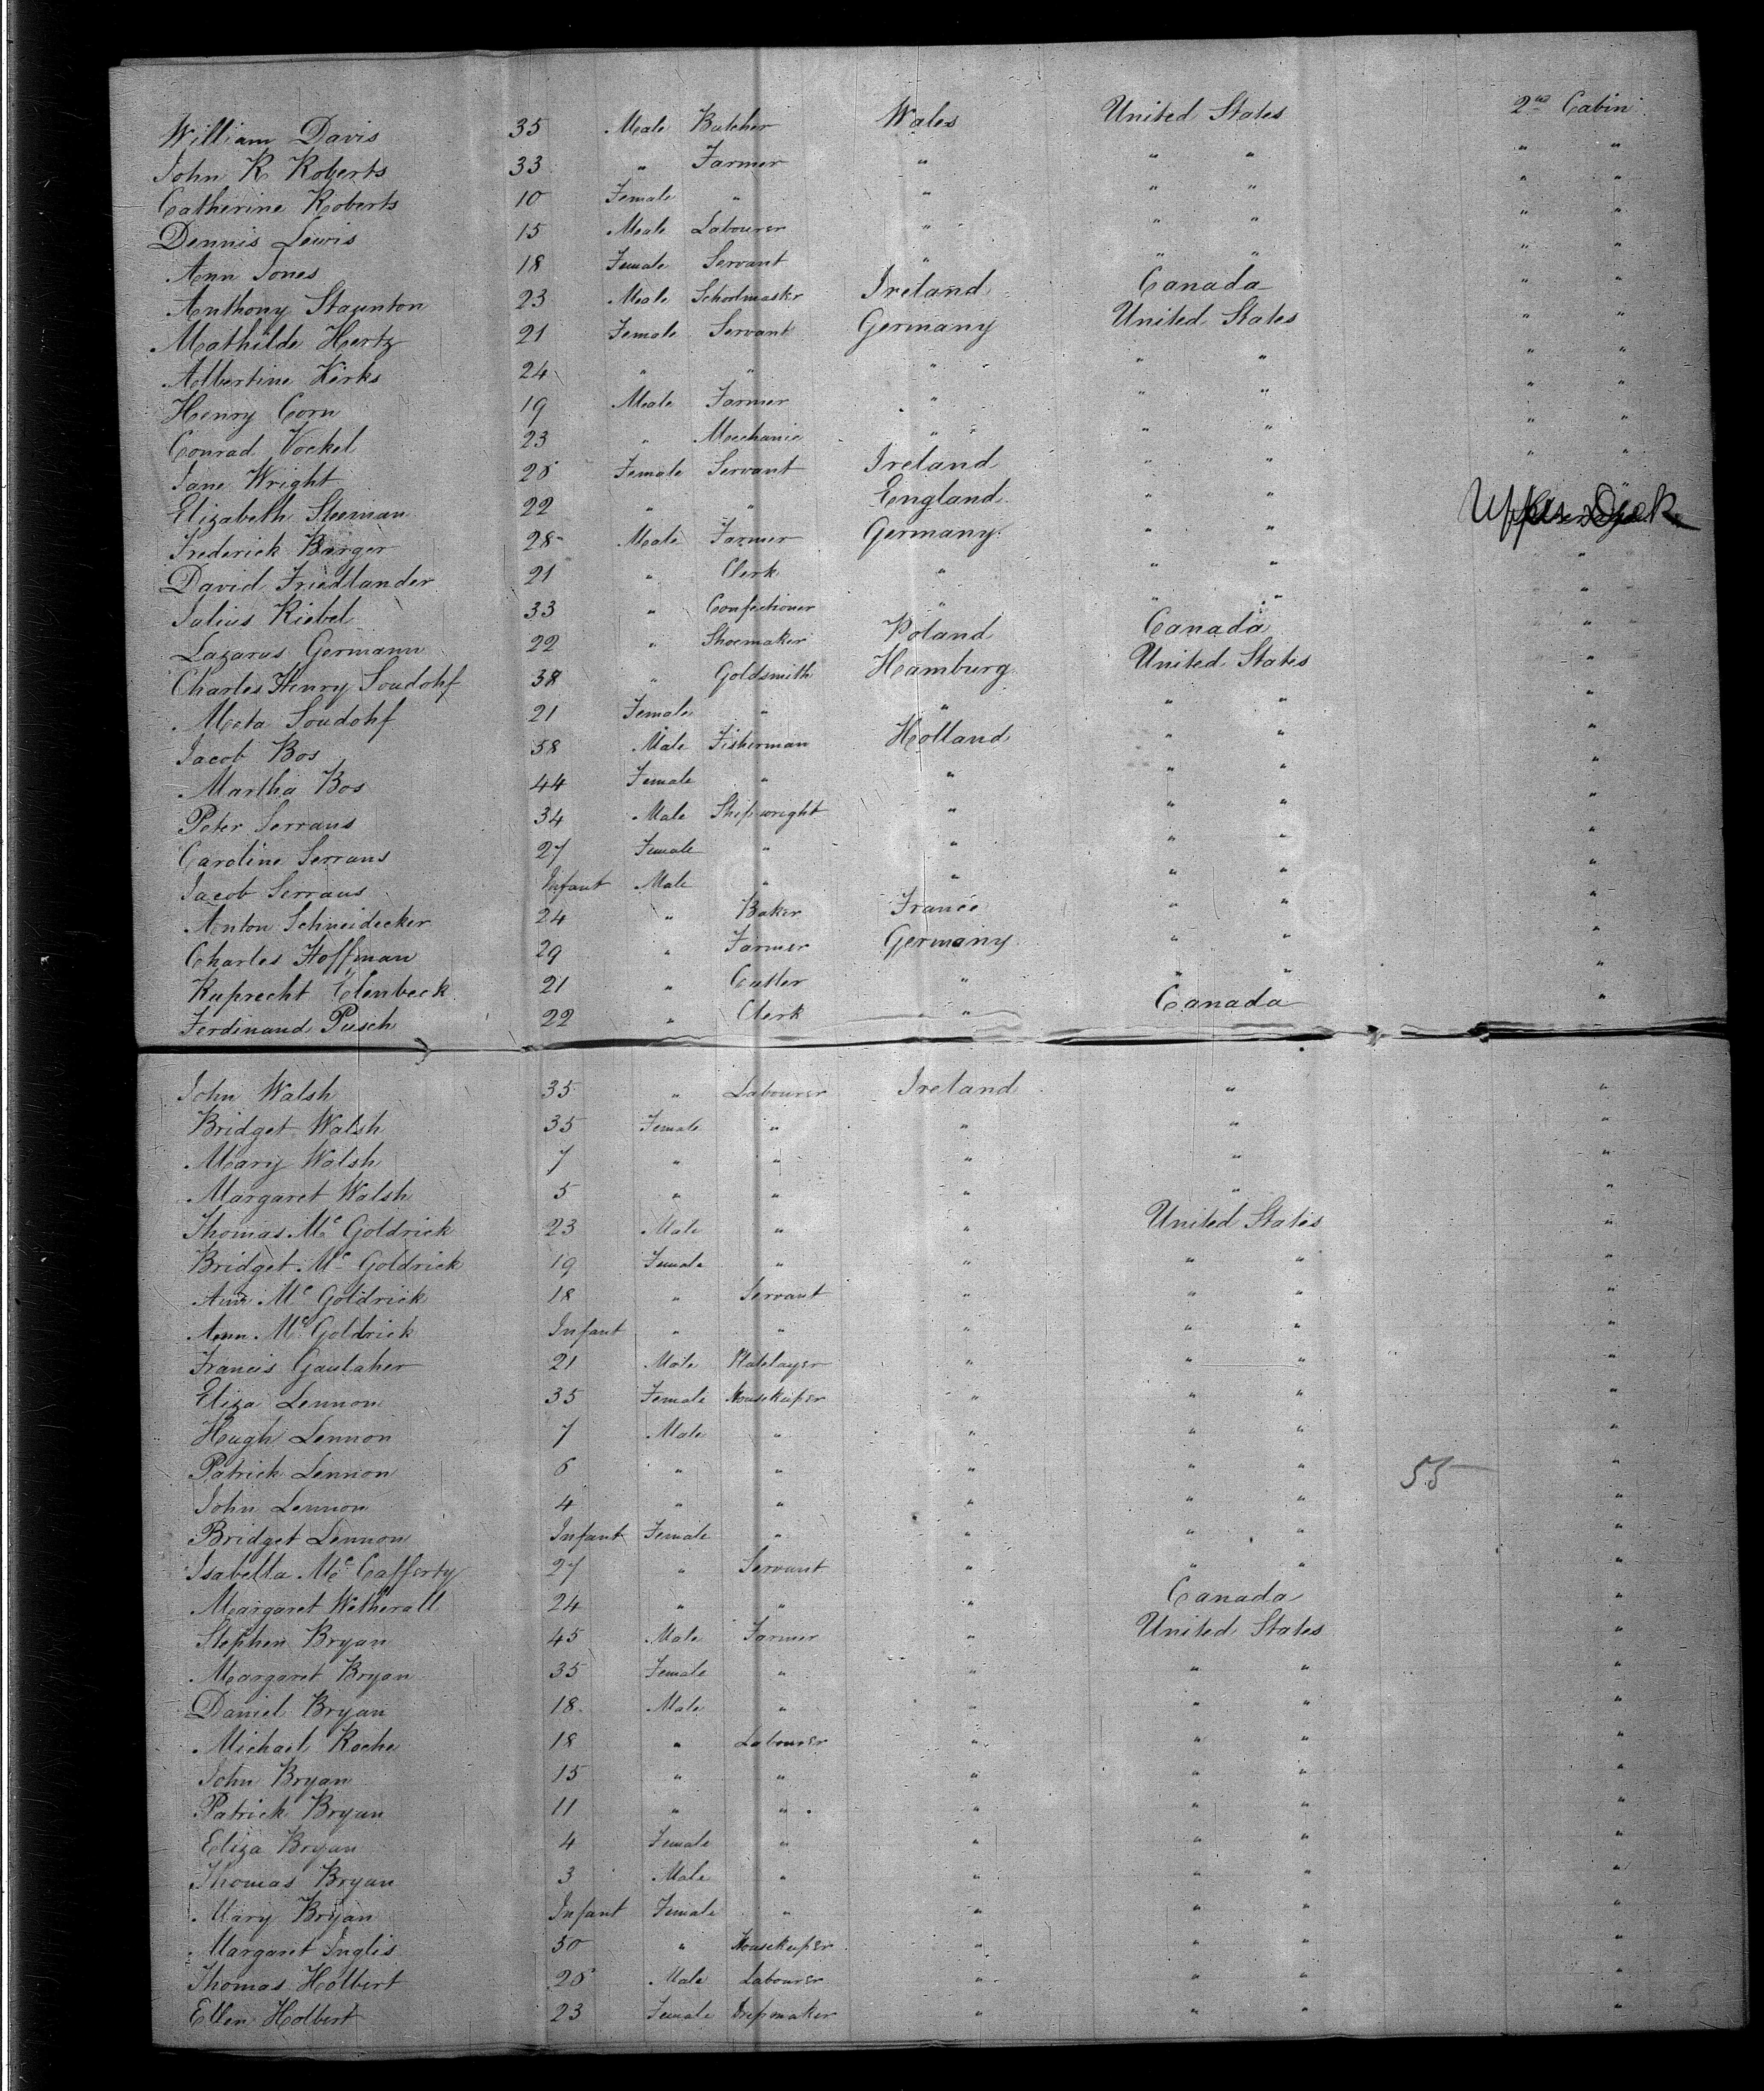 William Davis 35 Male Butcher Wales United States 2nd Cabin
John R Roberts 33 " Farmer " " " " "
Catherine Roberts 10 Female " " " " " "
Dennis Lewis 15 Male Labourer " " " " "
Ann Jones 18 Female Servant " " " " "
Anthony Staunton 23 Male Schoolmaster Ireland Canada " "
Mathilde Hertz 21 Female Servant Germany United States " "
Albertine Kirks 24 " " " " " " "
Henry Corn 19 Male Farmer " " " " "
Conrad Vockel 23 " Mechanic " " " " "
Jane Wright 28 Female Servant Ireland " " " "
Elizabeth Steeman 22 " " England " "
Frederick Barger 28 Male Farmer Germany " " Upper Deck
David Friedlander 21 " Clerk " " " "
Julius Riebel 33 " Confectioner " " " "
Lazarus Germann 22 " Shoemaker Poland Canada "
Charles Henry Soudohf 38 " Goldsmith Hamburg United States "
Meta Soudohf 21 Female " " " " "
Jacob Bos 58 Male Fisherman Holland " " "
Martha Bos 44 Female " " " " "
Peter Serraus 34 Male Shipwright " " " "
Caroline Serraus 27 Female " " " " "
Jacob Serraus Infant Male " " " " "
Anton Schneidecker 24 " Baker France " " "
Charles Hoffman 29 " Farmer Germany " " "
Ruprecht Elenbeck 21 " Cutler " " " "
Ferdinand Pusch 22 " Clerk " Canada "
John Walsh 35 " Labourer Ireland " "
Bridget Walsh 35 Female " " " "
Mary Walsh 7 " " " " "
Margaret Walsh 5 " " " " "
Thomas Mc Goldrick 23 Male " " United States "
Bridget Mc Goldrick 19 Female " " " " "
Ann Mc Goldrick 18 " Servant " " " "
Ann Mc Goldrick Infant " " " " " "
Francis Gaulaher 21 Male Platelayer " " " "
Eliza Lennon 35 Female Housekeeper " " " "
Hugh Lennon 7 Male " " " " "
Patrick Lennon 6 " " " " " 55 "
John Lennon 4 " " " " " "
Bridget Lennon Infant Female " " " " "
Isabella Mc Cafferty 27 " Servant " " " "
Margaret Wetherall 24 " " " Canada "
Stephen Bryan 45 Male Farmer " United States "
Margaret Bryan 35 Female " " " " "
Daniel Bryan 18 Male " " " " "
Michael Roche 18 " Labourer " " " "
John Bryan 15 " " " " " "
Patrick Bryan 11 " " " " " "
Eliza Bryan 4 Female " " " " "
Thomas Bryan 3 Male " " " " "
Mary Bryan Infant Female " " " " "
Margaret Inglis 50 " Housekeeper " " " "
Thomas Holbert 28 Male Labourer " " " "
Ellen Holbert 23 Female Dressmaker " " " "